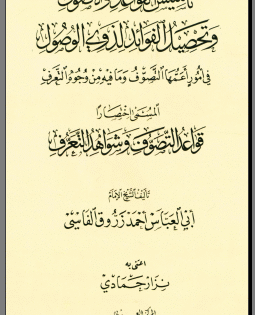 تأسيس القواعد والأصول
وتحصيل الفوائد لذوي الوصول
في أمور أعمها التصوف وما فيه من وجوه التعرف
المسمى اختصارا
قواعد التصوف وشواهد التعرف
تأليف الشيخ الإمام
أبي العباس أحمد زروق الفاسي
اعتنى به
نزار حمادي